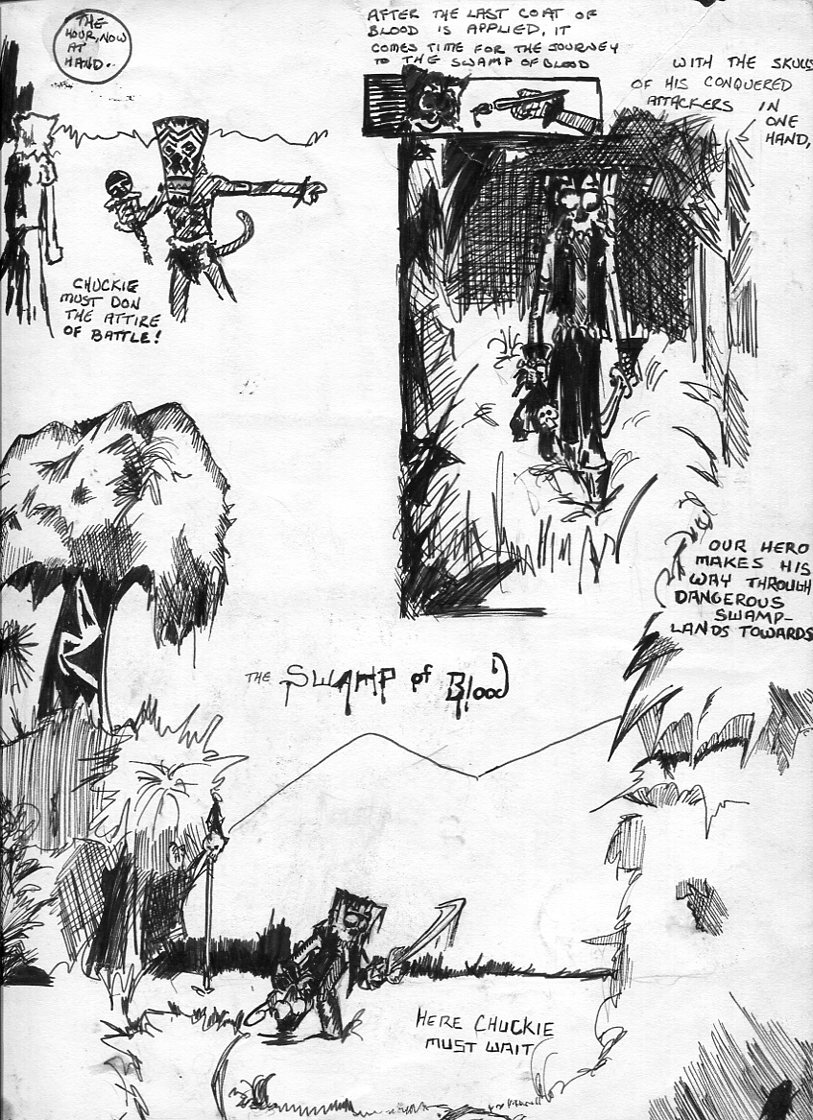 THE
HOUR, NOW
AT
HAND.
CHUCKIE
MUST DON
THE ATTIRE
OF BATTLE!
AFTER THE LAST COAT OF
BLOOD IS APPLIED, IT
COMES TIME FOR THE JOURNEY
TO THE SWAMP OF BLOOD
WITH THE SKULLS
OF HIS CONQUERED
ATTACKERS IN
ONE
HAND,
OUR HERO
MAKES HIS
WAY THROUGH
DANGEROUS
SWAMP-
LANDS TOWARDS
THE SWAMP of Blood
HERE CHUCKIE
MUST WAIT